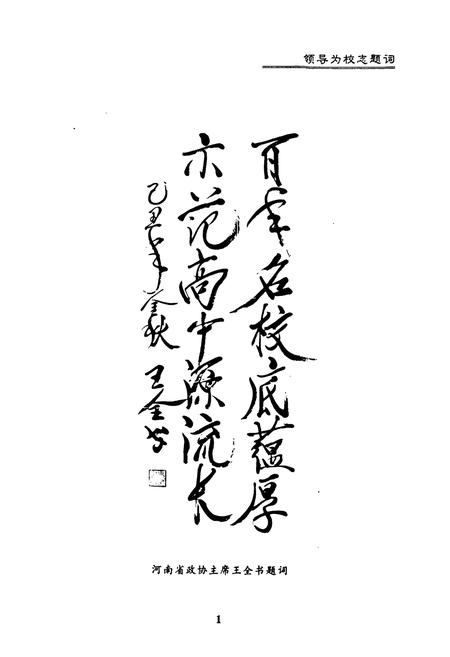 领导为校志题词
百年名校底蕴厚
示范高中源流长
乙丑年金秋 王全书
河南省政协主席王全书题词
1